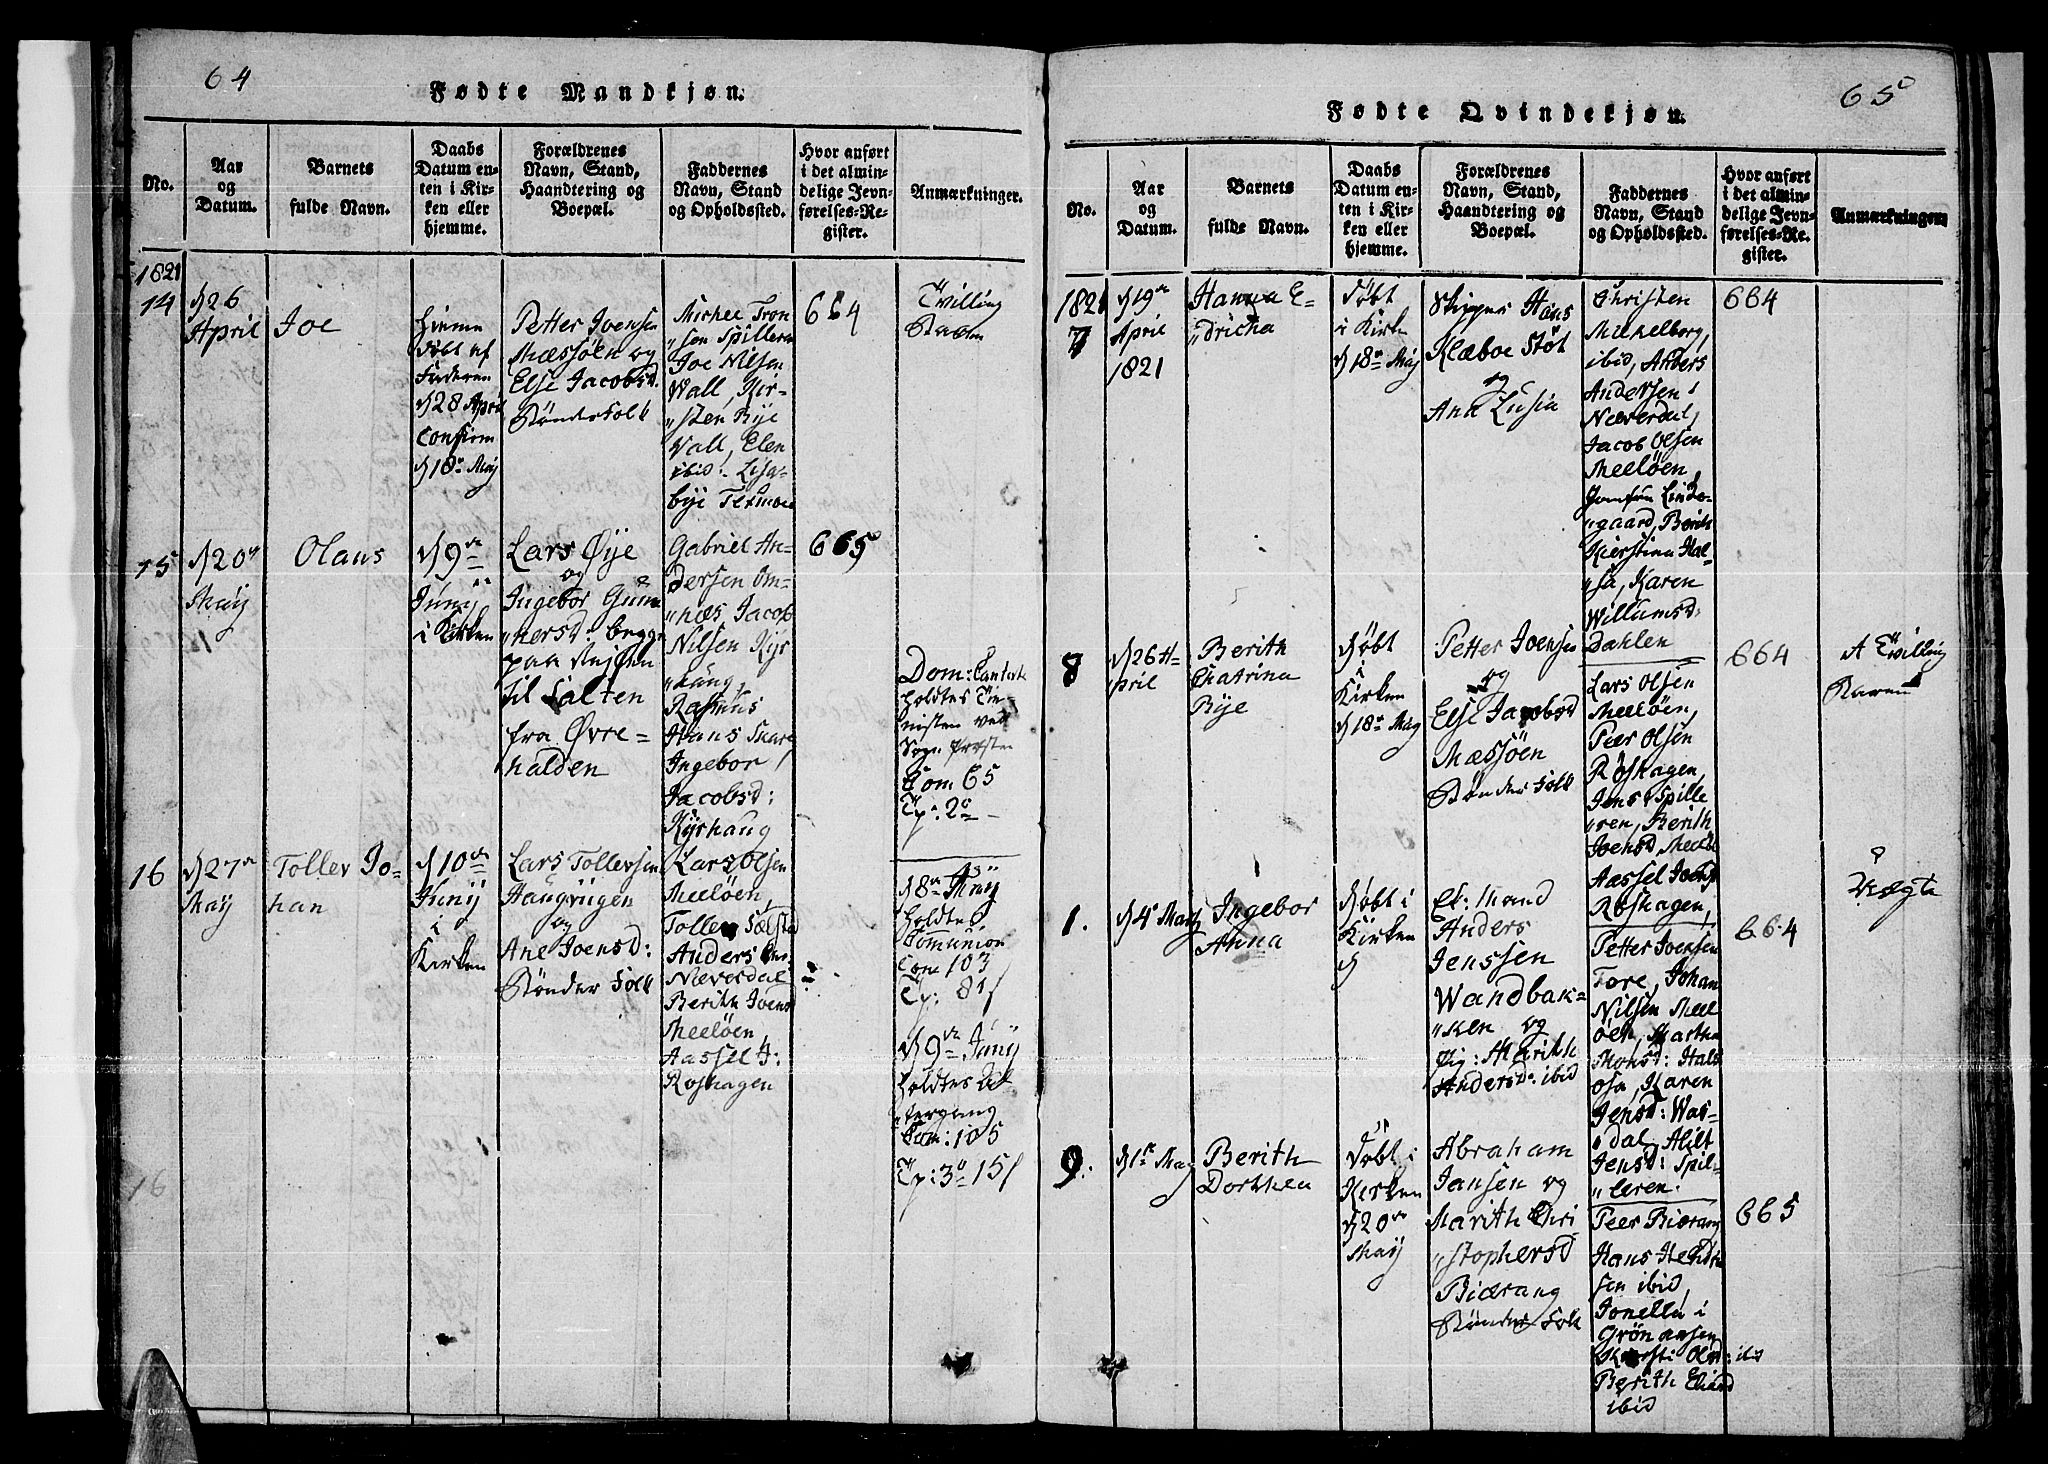 64
Fødte Mandkjøn.
No.
Aar
og
Datum.
Barnets
fulde Navn.
Daabs
Datum en-
ten i Kir-
ken eller
hjemme.
Forældrenes
Navn, Stand,
Haandtering og
Boepæl.
Faddernes
Navn, Stand
og Opholdssted.
Hvor anført
i det almin-
delige Jevn-
førelses-Re-
gister.
Anmærkninger.
1821
14
d 26
April
Joe
Hjemme
døbt af
Faderen
d 28 April
Confirm
d 18 May
Petter Joensen
Mæssöen og
Else Jacobsd.
Bönder Folk
Michel Tron
"sen Spilleren
Joe Nilsen
Vall, Kir-
"sten Rije
Vall, Elen
ibid: Lisa-
664
Tvilling
15
d 20
May
Olaus
d 9de
Junij
i Kirken
Lars Øije
og
Ingebor Gun
"nersd: begge
paa Rejsen
til Salten
fra Øvre-
halden
Gabriel An-
dersen Om-
"næs, Jacob
Nilsen Kijs
"haug,
Rasmus
Hans Skare
Ingebor
Jacobsd:
Kijshaug
665
Dom:
holdtes
ved
Com 65
Tp: 2
16
d 27
May
Tollev Jo-
han
d 10de
Junij
i
Kirken
Lars Tollevsen
Haugvigen
og
Ane Joensd:
Bönder Folk
Lars Olsen
Meelöen,
Tollev Sælstad
Anders
Næverdal
Berith Joensd
Meelöen,
Aassel J:
Roshagen
d 8de Junij
holdtes
Communion
Com 103
Tp: 81
d 9de Junij
holdtes Al-
"tergang
Com: 105
Tp: 3 151
16
65
Fødte Qvindekjøn.
No.
Aar
og
Datum.
Barnets
fulde Navn.
Daabs
Datum en-
ten i Kir-
ken eller
hjemme.
Forældrenes
Navn, Stand,
Haandtering og
Boepæl.
Faddernes
Navn, Stand
og Opholdssted.
Hvor anført
i det almin-
delige Jevn-
førelses-Re-
gister.
Anmærkninger
1821
7
d 19de
April
1821
Hanna E-
"dricha
Döbt
i Kirken
d 18 May
Skipper Hans
Klæboe Stöt
og
Ana Lusia
Christen
Mickelborg,
ibid, Anders
Andersen i
Næverdal,
Jacob Olsen
Meelöen,
Jomfru Linde-
"gaard, Berith
Kierstina Hal-
"sa, Karen
Willumsd:
Dahlen
664
8
d 26 A-
pril
Berith
Chatrina
Rije
Döbt
i
Kirken
d 18 May
Petter Joensen
og
Else Jacobsd
Mæssöen
Bönder Folk
Lars Olsen
Meelöen,
Peer Olsen
Röshagen,
Jens Spille
"ren, Berith
Joensd, Meelöe
Aassel Joensd
Röshagen,
664
A Tvilling
1.
d 4 May
Ingebor
Anna
Döbt i
Kirken
d
Ek: Mand
Anders
Jenssen
Wandbak-
"ken og
Pig: Marith
Andersd: ibid
Petter Joensen
Fore, Johan
Nilsen Meel
öen, Martha
Monsd: Hals
osa, Karen
Jensd: Was-
"dal, Alilt
Jensd: Spil-
"leren.
664
Uægte
9.
d 1 May
Berith
Dorthea
Döbt i
Kirken
d 20de
May
Abraham
Jansen og
Marith Chri
"stophersd
Biærang
Bönder Folk
Peer Biærang
Hans Hendri
sen ibid,
Jonella i
Grön
Olsd: ibid
Berith
ibid
665